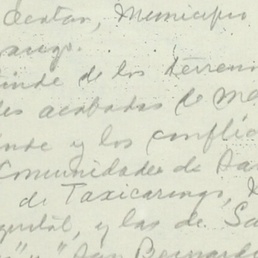 Ocotán, Municipio
rango.
linde de los terreno
des acabadas de me
inde y los conflic
Comunidades de San
de Taxicaringa,
quital, y las de Sa
" y "San Bernard